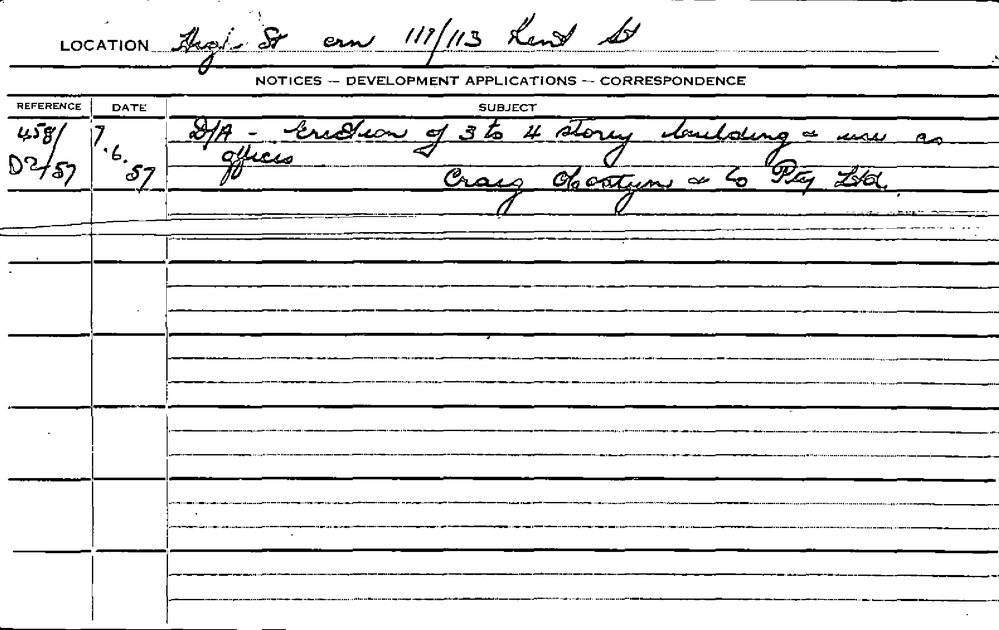 LOCATION High St crn 111/113 Kent St
NOTICES — DEVELOPMENT APPLICATIONS — CORRESPONDENCE
REFERENCE DATE SUBJECT
458/ 7. D/A - Erection of 3 to 4 storey building & use as
D2/57 .6. offices
57 Craig & Co Pty Ltd.